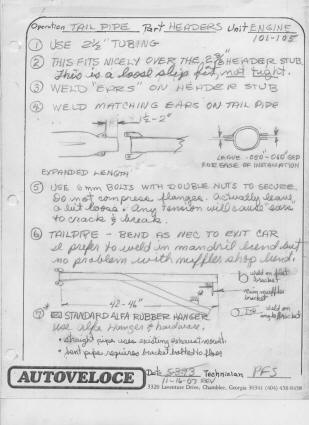 Operation TAIL PIPE Part HEADERS Unit ENGINE
101-105
① USE 2½" TUBING
② THIS FITS NICELY OVER THE 2⅜" HEADER STUB
This is a loose slip fit, not tight.
③ WELD "EARS" ON HEADER STUB
④ WELD MATCHING EARS ON TAIL PIPE
1½-2"
LEAVE .050"-.060" GAP
FOR EASE OF INSTALLATION
EXPANDED LENGTH
⑤ USE 6mm BOLTS WITH DOUBLE NUTS TO SECURE.
Do not compress flanges. Actually leave
a bit loose. Any tension will cause ears
to crack & break.
⑥ TAILPIPE - BEND AS NEC TO EXIT CAR
I prefer to weld in mandril bend but
no problem with muffler shop bend.
weld on flat
bracket
muffler
bracket
42-46"
weld on
angle bracket
⑦ STANDARD ALFA RUBBER HANGER
Use Alfa Hanger & hardware.
• straight pipe uses existing exhaust mount
• bent pipe requires bracket bolted to floor
AUTOVELOCE
Date 5-3-93 Technician PFS
11-16-07 REV
3320 Laventure Drive, Chamblee, Georgia 30341 (404) 458-8438